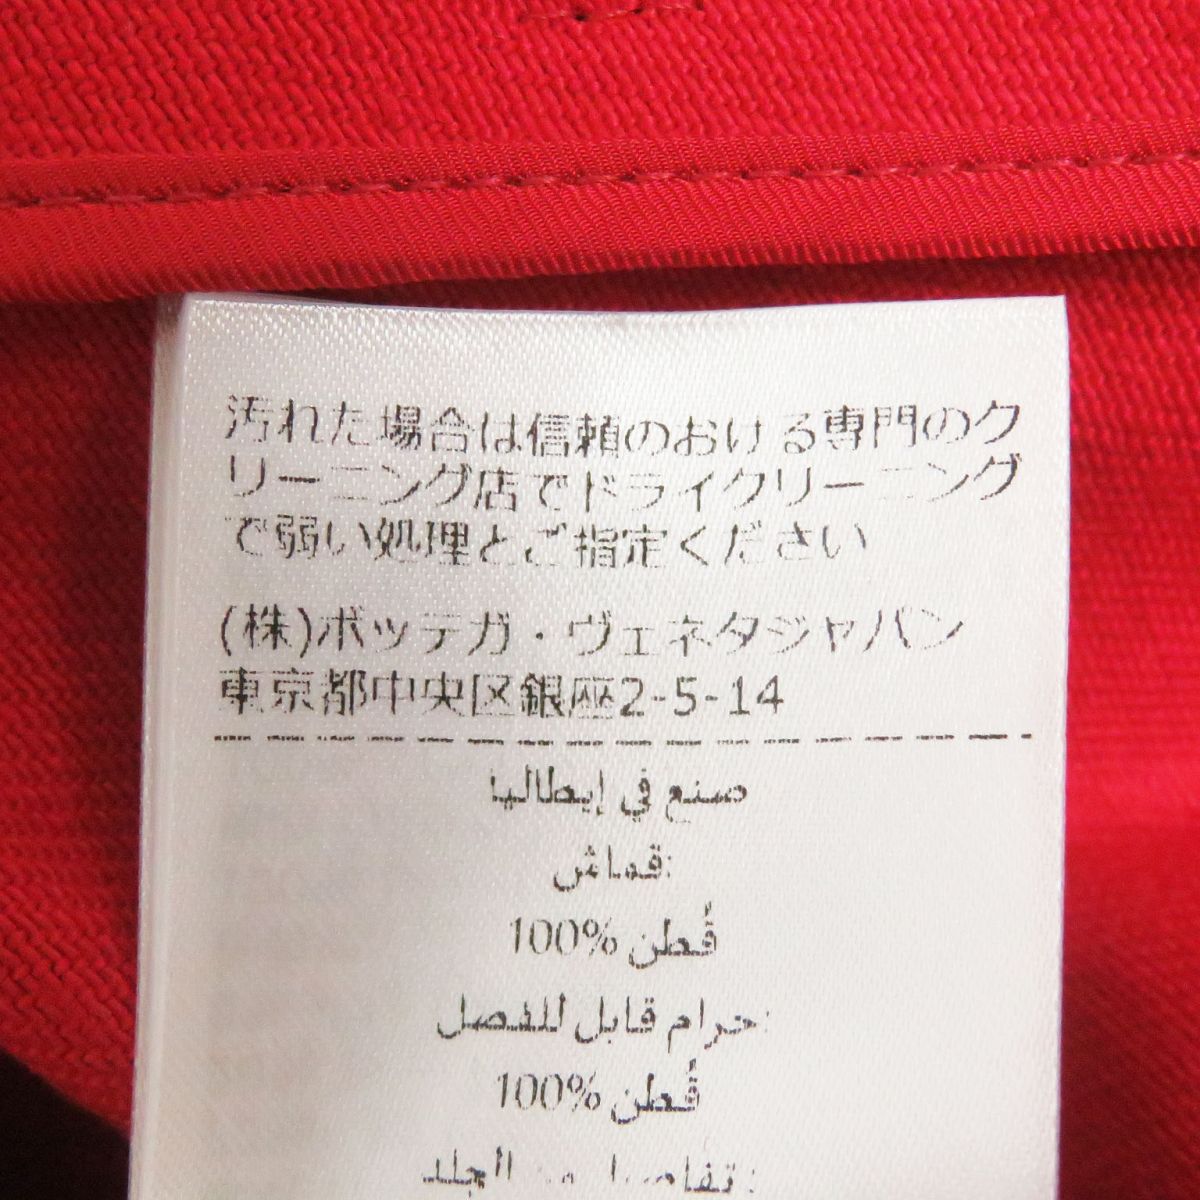 汚れた場合は信頼のおける専門のク
リーニング店でドライクリーニング
で弱い処理とご指定ください
(株)ボッテガ・ヴェネタジャパン
東京都中央区銀座2-5-14
صنع في إيطاليا
قماش:
100% قُطن
حرام قابل للفصل:
100% قُطن
تفاصيل من الجلد: